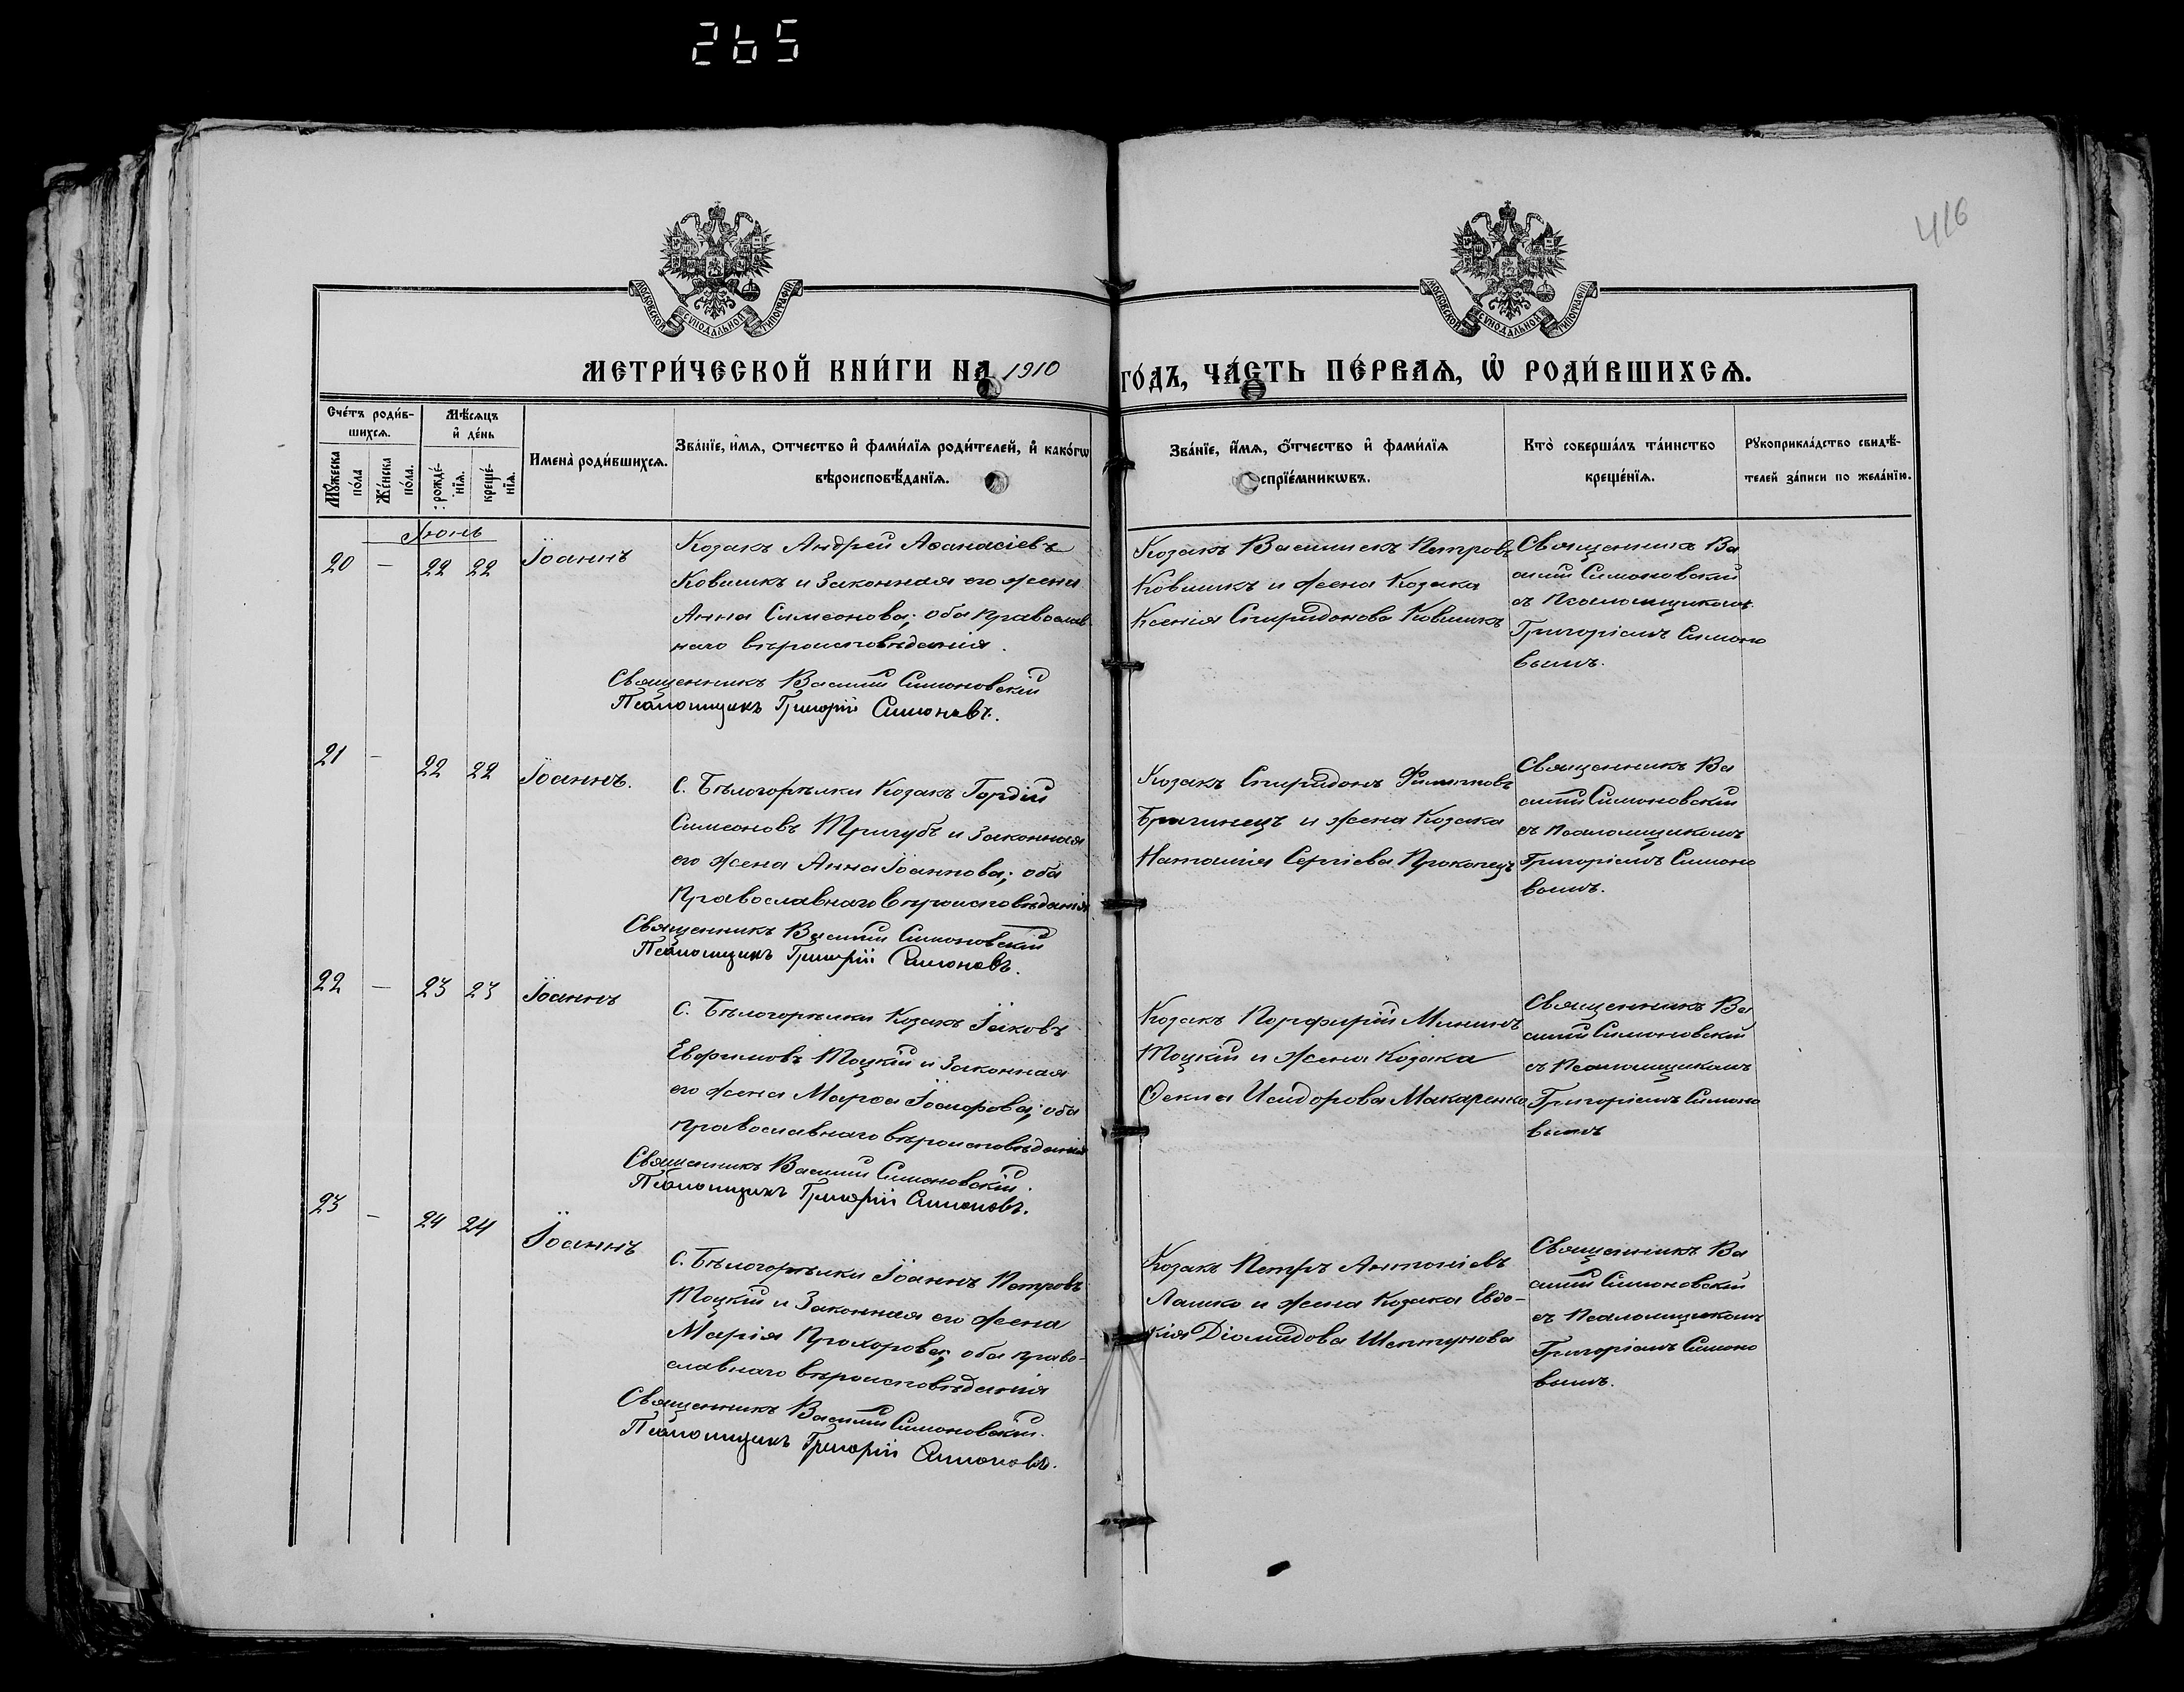 265
416
МОСКОВСКОЙ СѴНОДАЛЬНОЙ ТИПОГРАФІИ
МОСКОВСКОЙ СѴНОДАЛЬНОЙ ТИПОГРАФІИ
МЕТРИ́ЧЕСКОЙ КНИ́ГИ НА 1910 ГО́ДЪ, ЧА́СТЬ ПЕ́РВАѦ, Ѡ РОДИ́ВШИХСѦ.
Сче́тъ роди́в-
шихсѧ.
Мꙋжеска по́ла
Же́нска по́ла.
Мѣ́сѧцъ
и҆ де́нь
рожде́-нїѧ.
креще́-нїѧ.
Имена̀ роди́вшихсѧ.
Зва́нїе, и҆́мѧ, ѻтчество и҆ фами́лїѧ роди́телей, и҆ како́гѡ
вѣроисповѣ́данїѧ.
Зва́нїе, и҆́мѧ, ѻ҆́тчество и҆ фами́лїѧ
воспрїе́мникѡвъ.
Кто̀ соверша́лъ та́инство
креще́нїѧ.
Рꙋкоприкла́дство свидѣ́-
телей за́писи по жела́нїю.
Іюнь
20 — 22 22 Іоаннъ
Козакъ Андрей Аѳанасіевъ
Ковшикъ и Законная его жена
Анна Симеонова; оба православ
наго вѣроисповѣданія.
Священникъ Василій Симоновскій
Псаломщикъ Григорій Симоновъ.
Козакъ Василискъ Петровъ
Ковшикъ и жена Козака
Ксенія Спиридонова Ковшикъ
Священникъ Ва
силій Симоновскій
съ Псаломщикомъ
Григоріемъ Симоно
вымъ.
21 — 22 22 Іоаннъ.
С. Бѣлогорѣлки Козакъ Гордій
Симеоновъ Тригубъ и Законная
его жена Анна Іоаннова; оба
Православнаго вѣроисповѣданія
Священникъ Василій Симоновскій
Псаломщикъ Григорій Симоновъ.
Козакъ Спиридонъ Филиповъ
Брагинецъ и жена Козака
Наталія Сергіева Прокопецъ
Священникъ Ва
силій Симоновскій
съ Псаломщикомъ
Григоріемъ Симоно
вымъ.
22 — 23 23 Іоаннъ
С. Бѣлогорѣлки Козакъ Іаковъ
Евфимовъ Тоцкій и Законная
его жена Марѳа Іосифова; оба
православнаго вѣроисповѣданія
Священникъ Василій Симоновскій.
Псаломщикъ Григорій Симоновъ.
Козакъ Порфирій Мининъ
Тоцкій и жена Козака
Ѳекла Исидорова Макаренко
Священникъ Ва
силій Симоновскій
съ Псаломщикомъ
Григоріемъ Симоно
вымъ
23 — 24 24 Іоаннъ
С. Бѣлогорѣлки Іоаннъ Петровъ
Тоцкій и Законная его жена
Марія Прохорова; оба право-
славнаго вѣроисповѣданія
Священникъ Василій Симоновскій.
Псаломщикъ Григорій Симоновъ.
Козакъ Петръ Антоніевъ
Лашко и жена Козака Евдо-
кія Діомидова Шептунова
Священникъ Ва
силій Симоновскій
съ Псаломщикомъ
Григоріемъ Симоно
вымъ.